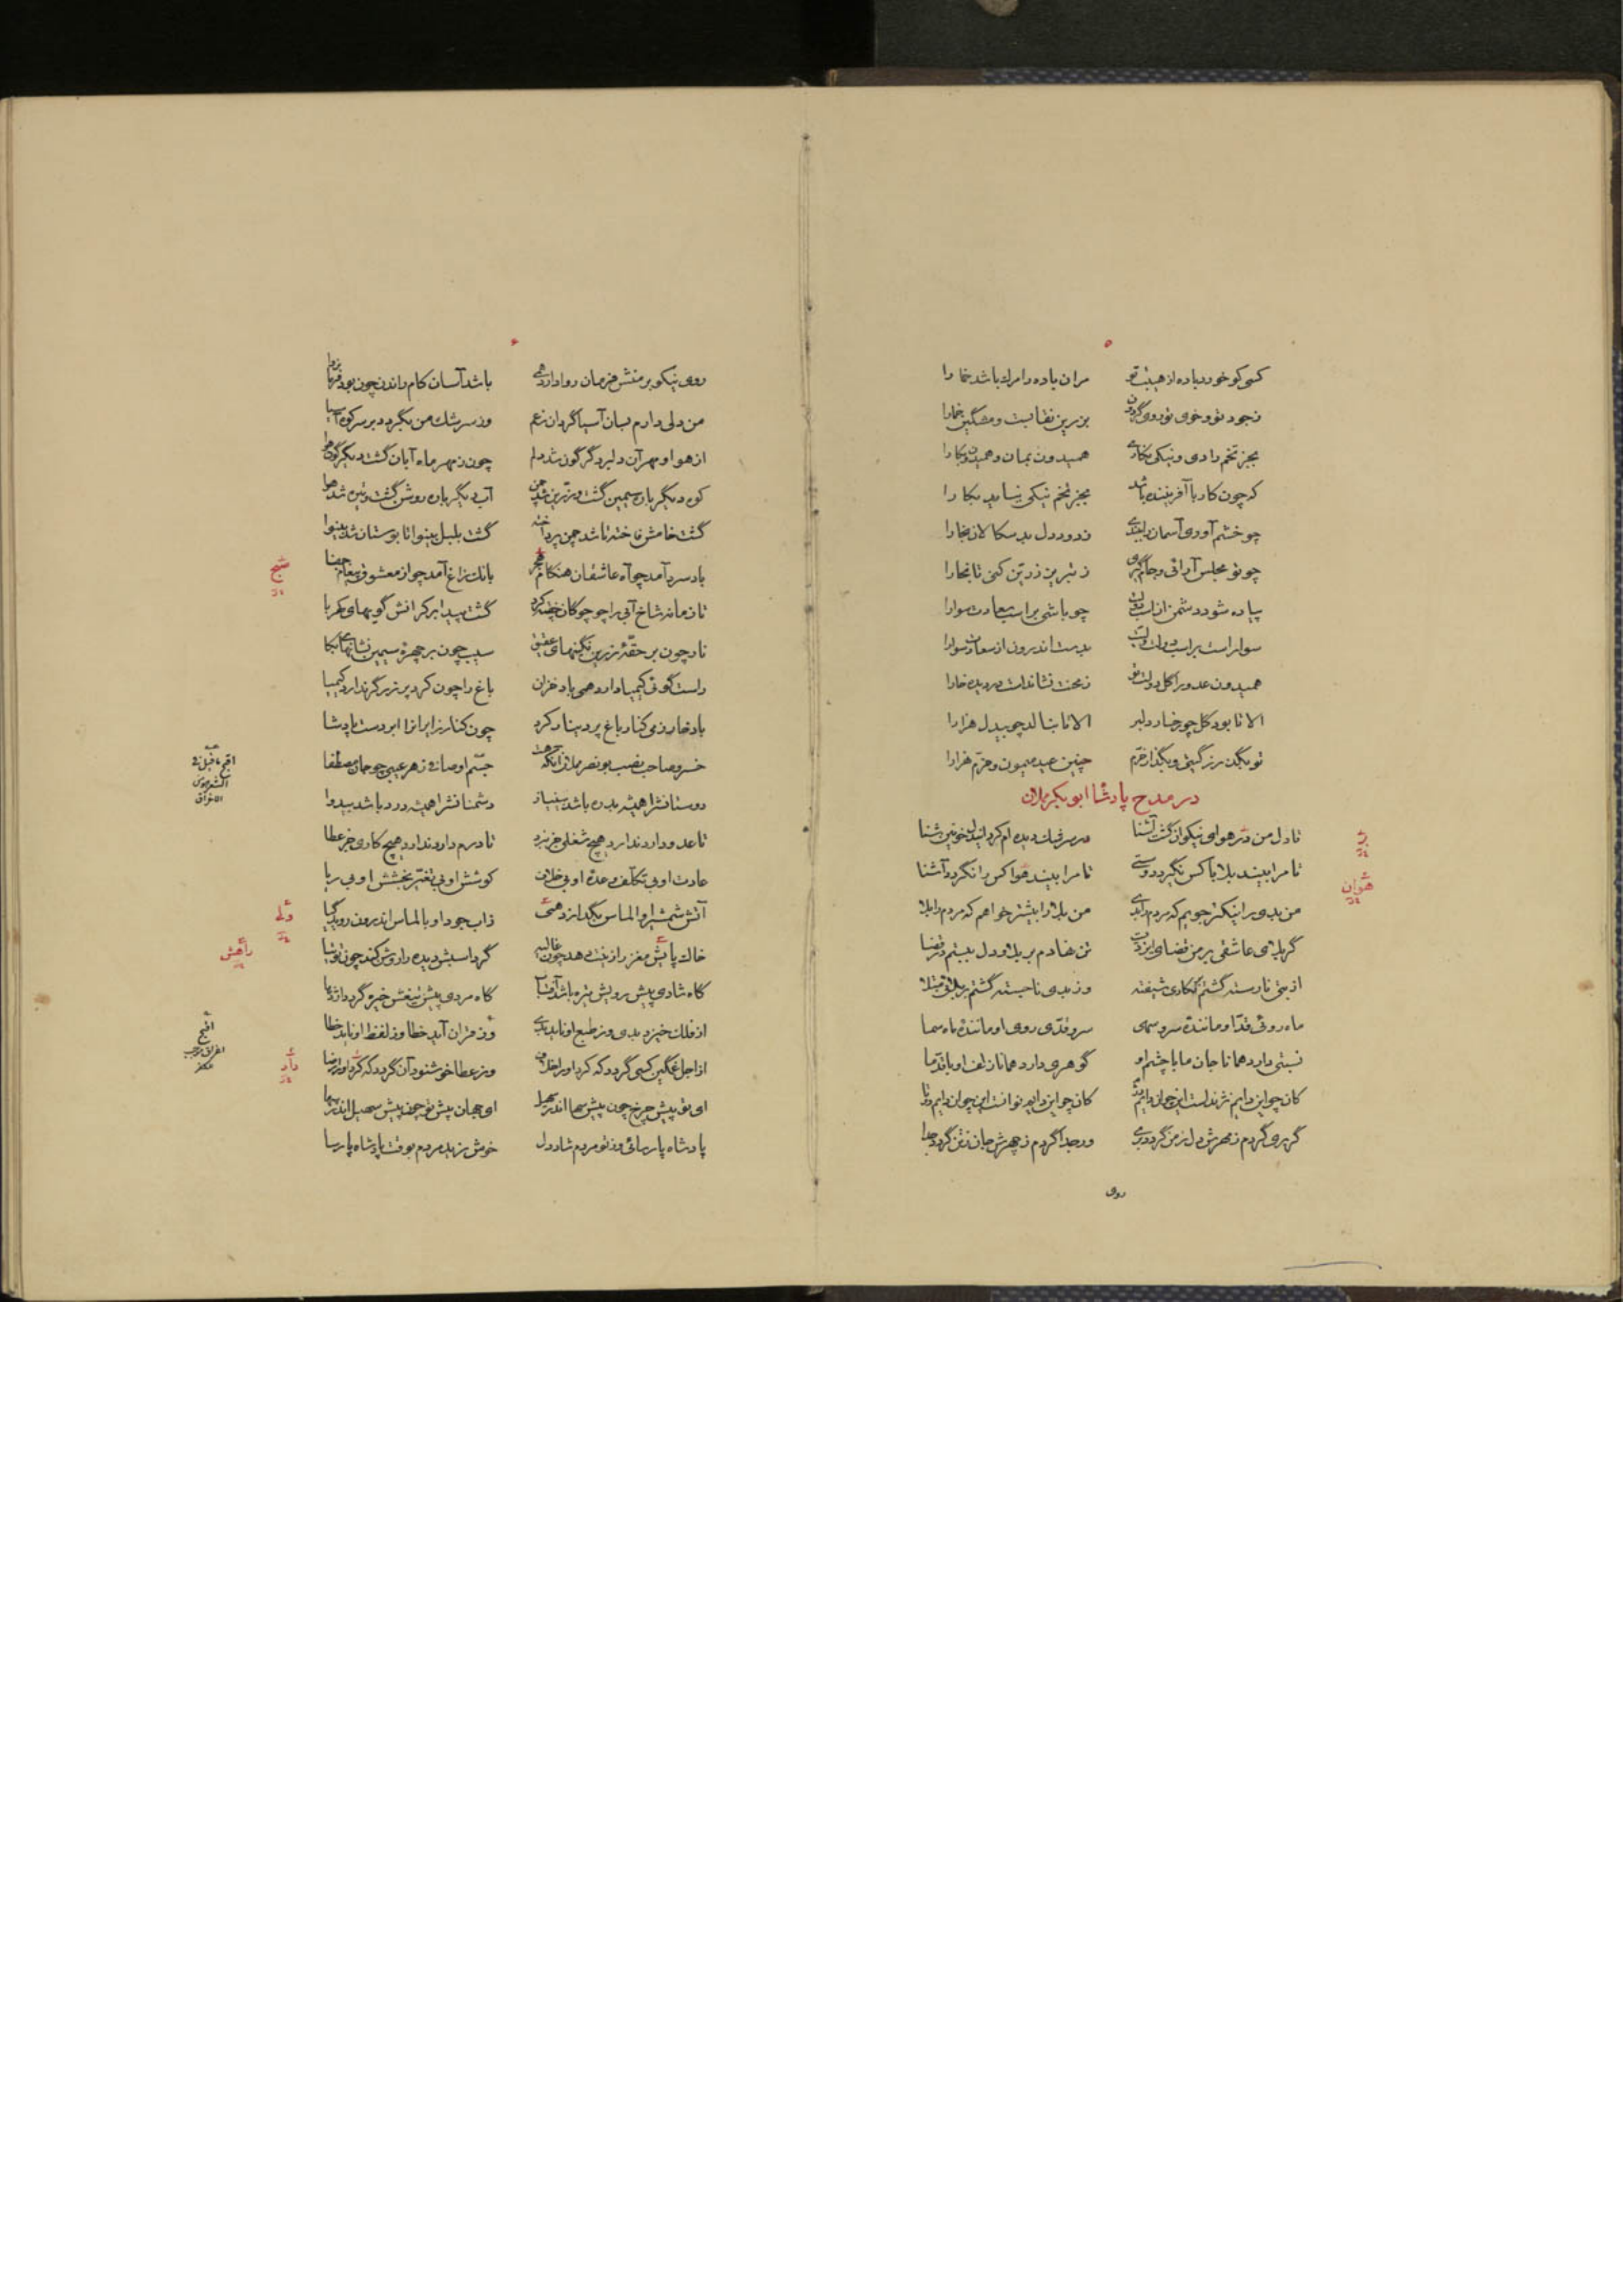 ۵
کسی کو خورد باده از هیبت تو مران باده را مرک باشد خمارا
ز جود تو و خوی تو روی گردون بزرین نقابست و مشکین خمارا
بجز تخم رادی و نیکی نکاری همیدون بمان و همیدون بکارا
که چون کار با آفریننده باشد بجز تخم نیکی نیاید بکارا
چو خشم آوری آسمان زود دل بدسکالان بخارا
چو تو مجلس آرائی و جام گیری ز شیرین زرین کنی تا بخارا
پیاده شود دشمن از اسب دولت چو باشی بر اسب سعادت سوارا
سوار است بر اسب دولت بدست اندرون از سعادت سوارا
همیدون عدو را گل دولت تو ز محنت نشاندست در دیده خارا
الا تا بود گل چو رخسار دلبر الا تا بنالد چو بیدل هزارا
تو بگذر ز گیتی و بگذار خرم چنین عید میمون و خرم هزارا
در مدح پادشا ابو بکر مملان
تا دل من در هوای نیکوان گشت آشنا در سرشک دیده ام کرد این دل خونین شنا
تا مرا بیند بلا با کس نگیرد دوستی تا مرا بیند هوا کس را نگردد آشنا
من بدی را نیکتر جویم که مردم را بدی من بلا را بیشتر خواهم که مردم را بلا
گر بلای عاشقی بر من قضای ایزدست تن نهادم بر بلا و دل ببستم در قضا
از پی نارسته گشتم نکاری شیفته وز بدی ناجسته گشتم بر بلائی مبتلا
ماه روئی قد او ماننده سرو سهی سرو قدی روی او ماننده ماه سما
نسبتی دارد همانا جان ما با چشم او گوهری دارد همانا زلف او با قد ما
کان چو این دایم نژندست این چو آن دایم کان چو این دایم نوانست این چو آن دایم دوتا
گر بری گردم ز مهرش دل ز من گردد بری ور جدا گردم ز چهرش جان ز تن گردد جدا
روی
بز
هوان
۶
روی نیکو بر منش فرمان روا دارد همی باشد آسان کام راندن چون بود فرمان روا
من دلی دارم بسان آسیا گردان ز غم وز سرشک من بگردد بر سر کوه آسیا
از هوا و مهر آن دلبر دگرگون شد دلم چون ز مهر ماه آبان گشت دیگرگون هوا
کوه دیگر باره سیمین گشت و زرین شد چمن آب دیگر باره روشن گشت و تیره شد هوا
گشت خامش فاخته تا شد چمن پرداخته گشت بلبل بینوا تا بوستان شد بینوا
باد سرد آمد چو آه عاشقان هنگام هجر بانک زاغ آمد چو از معشوق پیغام جفا
تا زمانه شاخ آبی را چو چوگان خفته کرد گشت پیدا بر کرانش گویهای کهربا
نار چون بر حقه زرین نگینهای عقیق سیب چون بر چهره سیمین نشانهای بکا
راست گوئی کیمیا دارد همی باد خزان باغ را چون کرد پر زر گر ندارد کیمیا
باد خوارزمی کنار باغ پر دینار کرد چون کنار زایران را ابر دست پادشا
خسرو صاحب نصب بونصر مملان آنکه هست جسم او صافی ز هر عیبی چو جان مصطفا
دوستانش را همیشه بدره باشد بینیاز دشمنانش را همیشه درد باشد بیدوا
تا عدو دارد ندارد هیچ شغلی جز نبرد تا درم دارد ندارد هیچ کاری جز عطا
عادت او بی تکلف وعده او بی خلاف کوشش او بی تغیر بخشش او بی ریا
آتش شمشیر او الماس بگدازد همی ز آب جود او بالماس اندرون روید گیا
خاک پایش مغز را زینت دهد چون غالیه گرد اسبش دیده را روشن کند چون توتیا
گاه شادی پیش رویش تیره باشد آفتاب گاه مردی پیش تیغش خیره گردد اژدها
از فلک خیزد بدی وز طبع او ناید بدی وز قران آید خطا وز لفظ او ناید خطا
از اجل غمگین کسی گردد که کرد او را خلاف وز عطا خوشنود آن گردد که کرد او را رضا
ای تو پیش چرخ چون پیش سها اندر سهیل ای جهان پیش تو چون پیش سهیل اندر سها
پادشاه پارسائی وز تو مردم شاد دل خوش زید مردم بوقت پادشاه پارسا
راهش